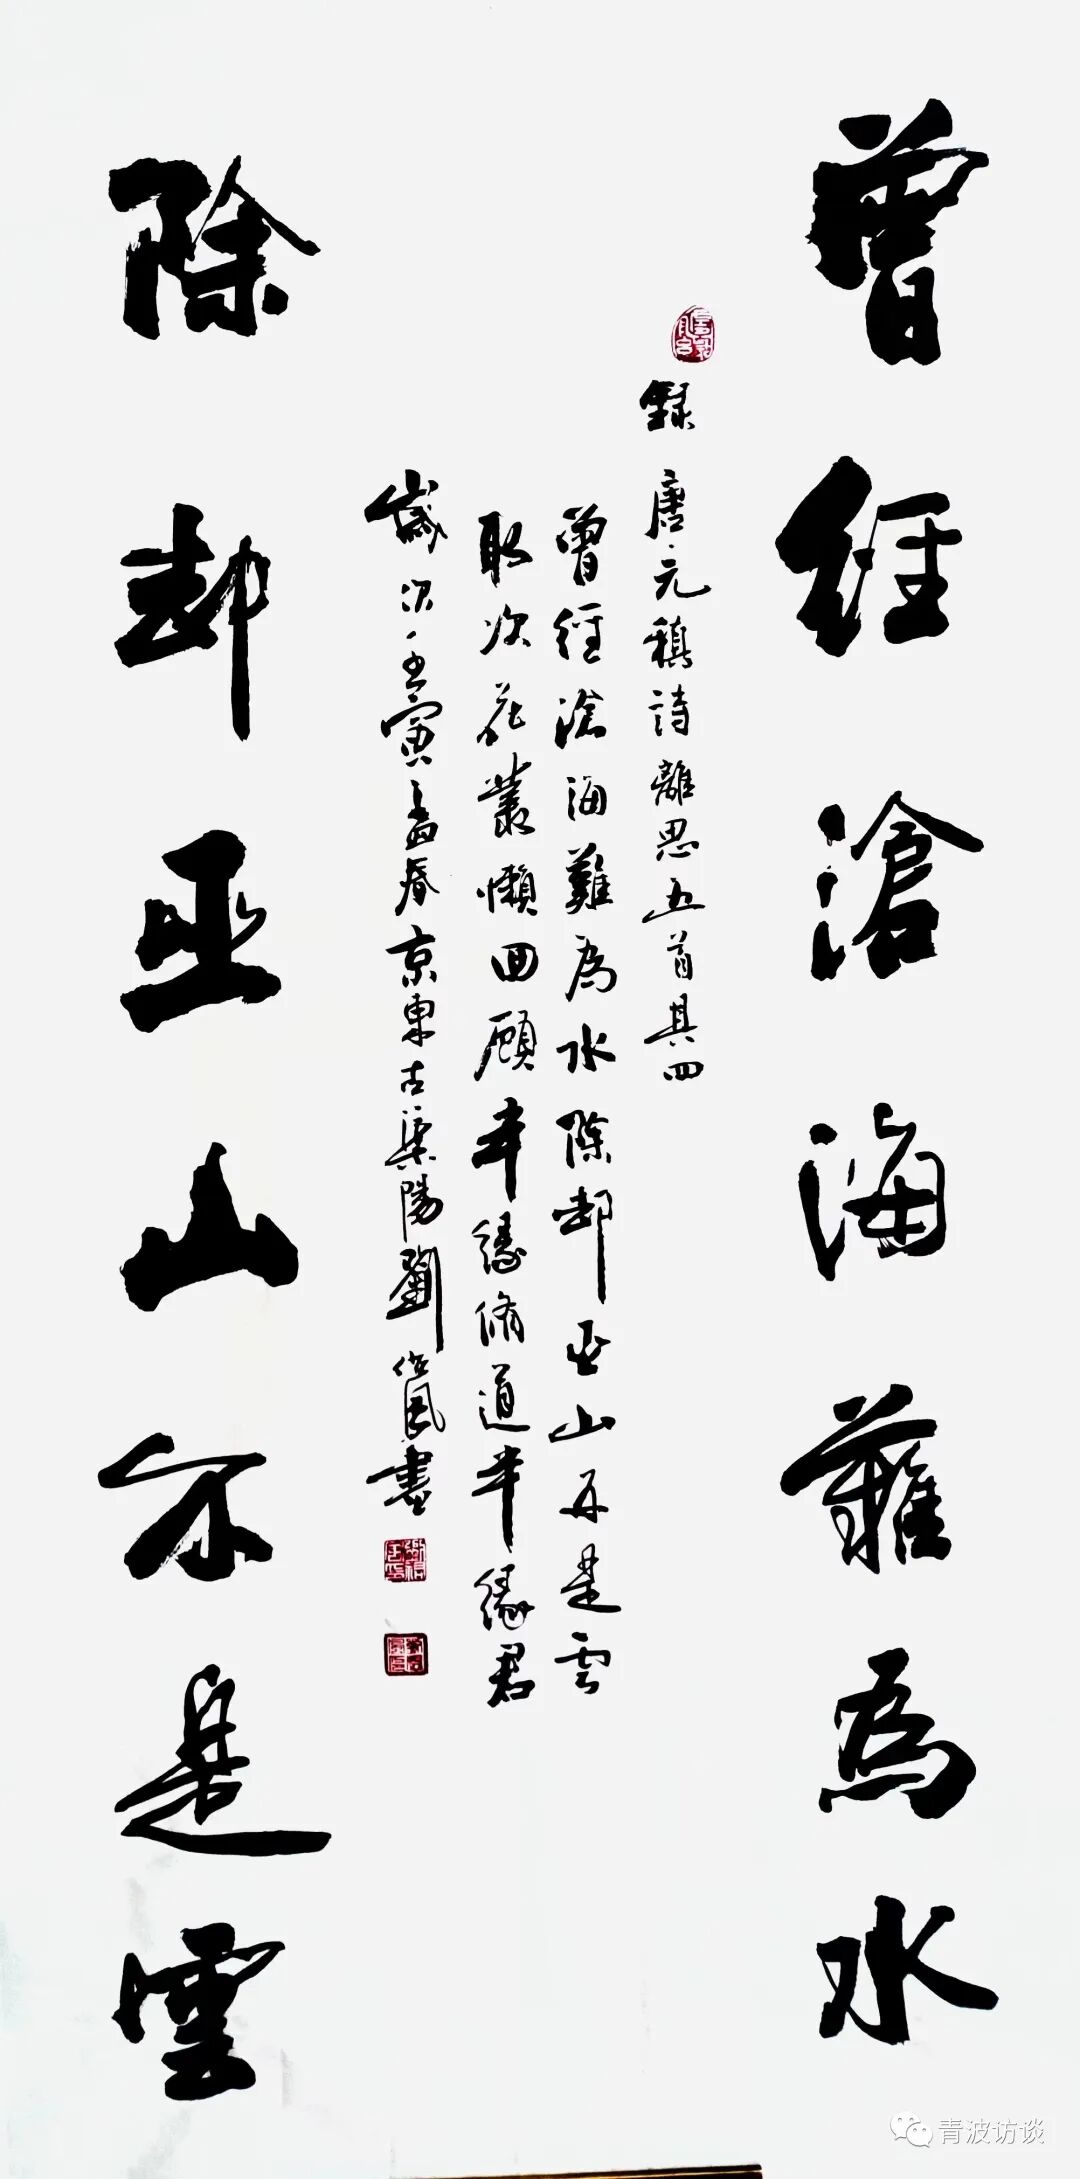 曾經滄海難為水
錄唐元稹詩離思五首其四
曾經滄海難為水除却巫山不是雲
取次花叢懶回顧半緣脩道半緣君
歲次壬寅孟春京東古渠陽劉
書
除却巫山不是雲
青波访谈